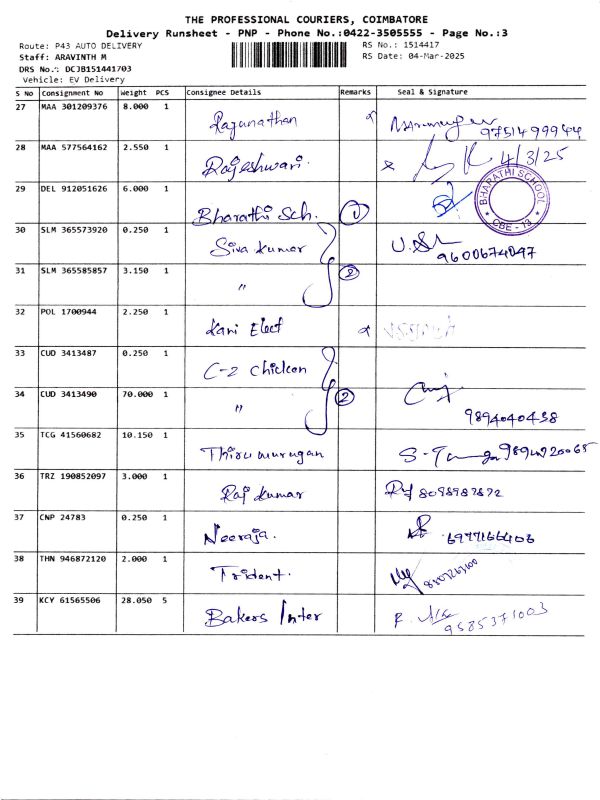 THE PROFESSIONAL COURIERS, COIMBATORE
Delivery Runsheet - PNP - Phone No.:0422-3505555 - Page No.:3
Route: P43 AUTO DELIVERY RS No.: 1514417
Staff: ARAVINTH M RS Date: 04-Mar-2025
DRS No.: DCJB151441703
Vehicle: EV Delivery
S No Consignment No Weight PCS Consignee Details Remarks Seal & Signature
27 MAA 301209376 8.000 1 Rajunathan 9751499944
28 MAA 577564162 2.550 1 Rajeshwari. 4/3/25
29 DEL 912051626 6.000 1 Bharathi Sch. 1 BHARATHI SCHOOL CBE - 13
30 SLM 365573920 0.250 1 Siva kumar 9600674047
31 SLM 365585857 3.150 1 " 2
32 POL 1700944 2.250 1 Kani Elect
33 CUD 3413487 0.250 1 C-2 chicken
34 CUD 3413490 70.000 1 " 2 9894040458
35 TCG 41560682 10.150 1 Thirumurugan
36 TRZ 190852097 3.000 1 Raj kumar 8098987872
37 CNP 24783 0.250 1 Neeraja.
38 THN 946872120 2.000 1 Trident.
39 KCY 61565506 28.050 5 Bakers Inter 9585371003